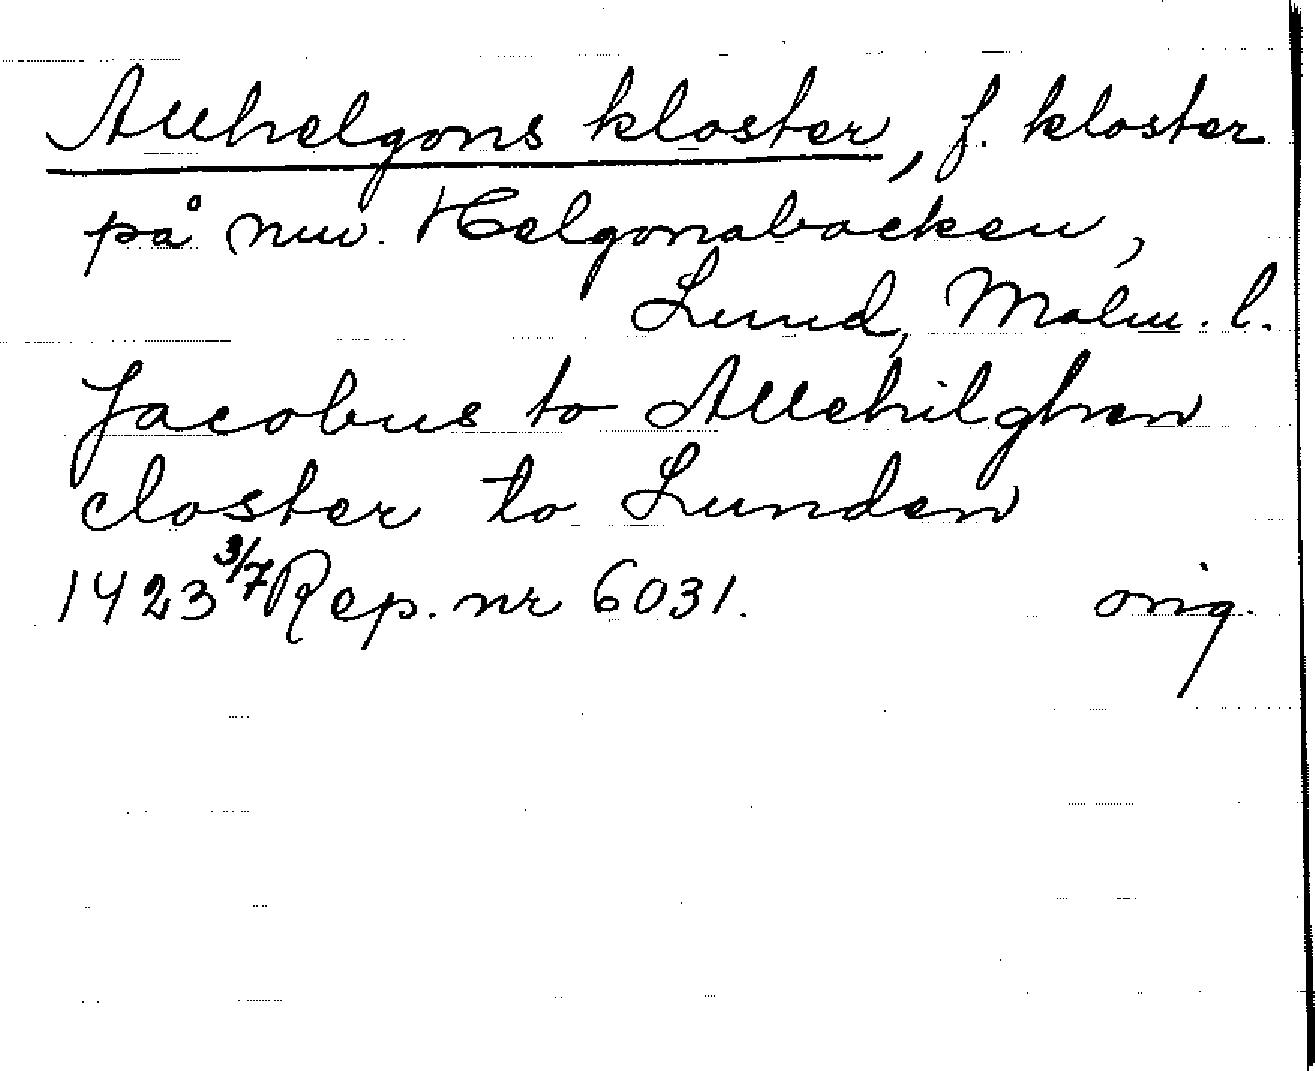 Allhelgons kloster, f. kloster
på nuv. Helgonabacken,
Lund, Malm. l.
Jacobus to Allehilghen
closter to Lunden
1423 3/7 Rep. nr 6031. orig.